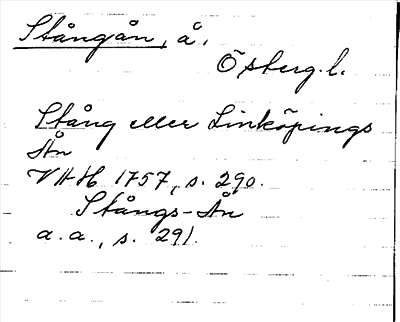 Stångån, å.
Östergö. l.
Stång eller Linköpings
Ån
VHH 1757, s. 290.
Stångs-Ån
a.a., s. 291.